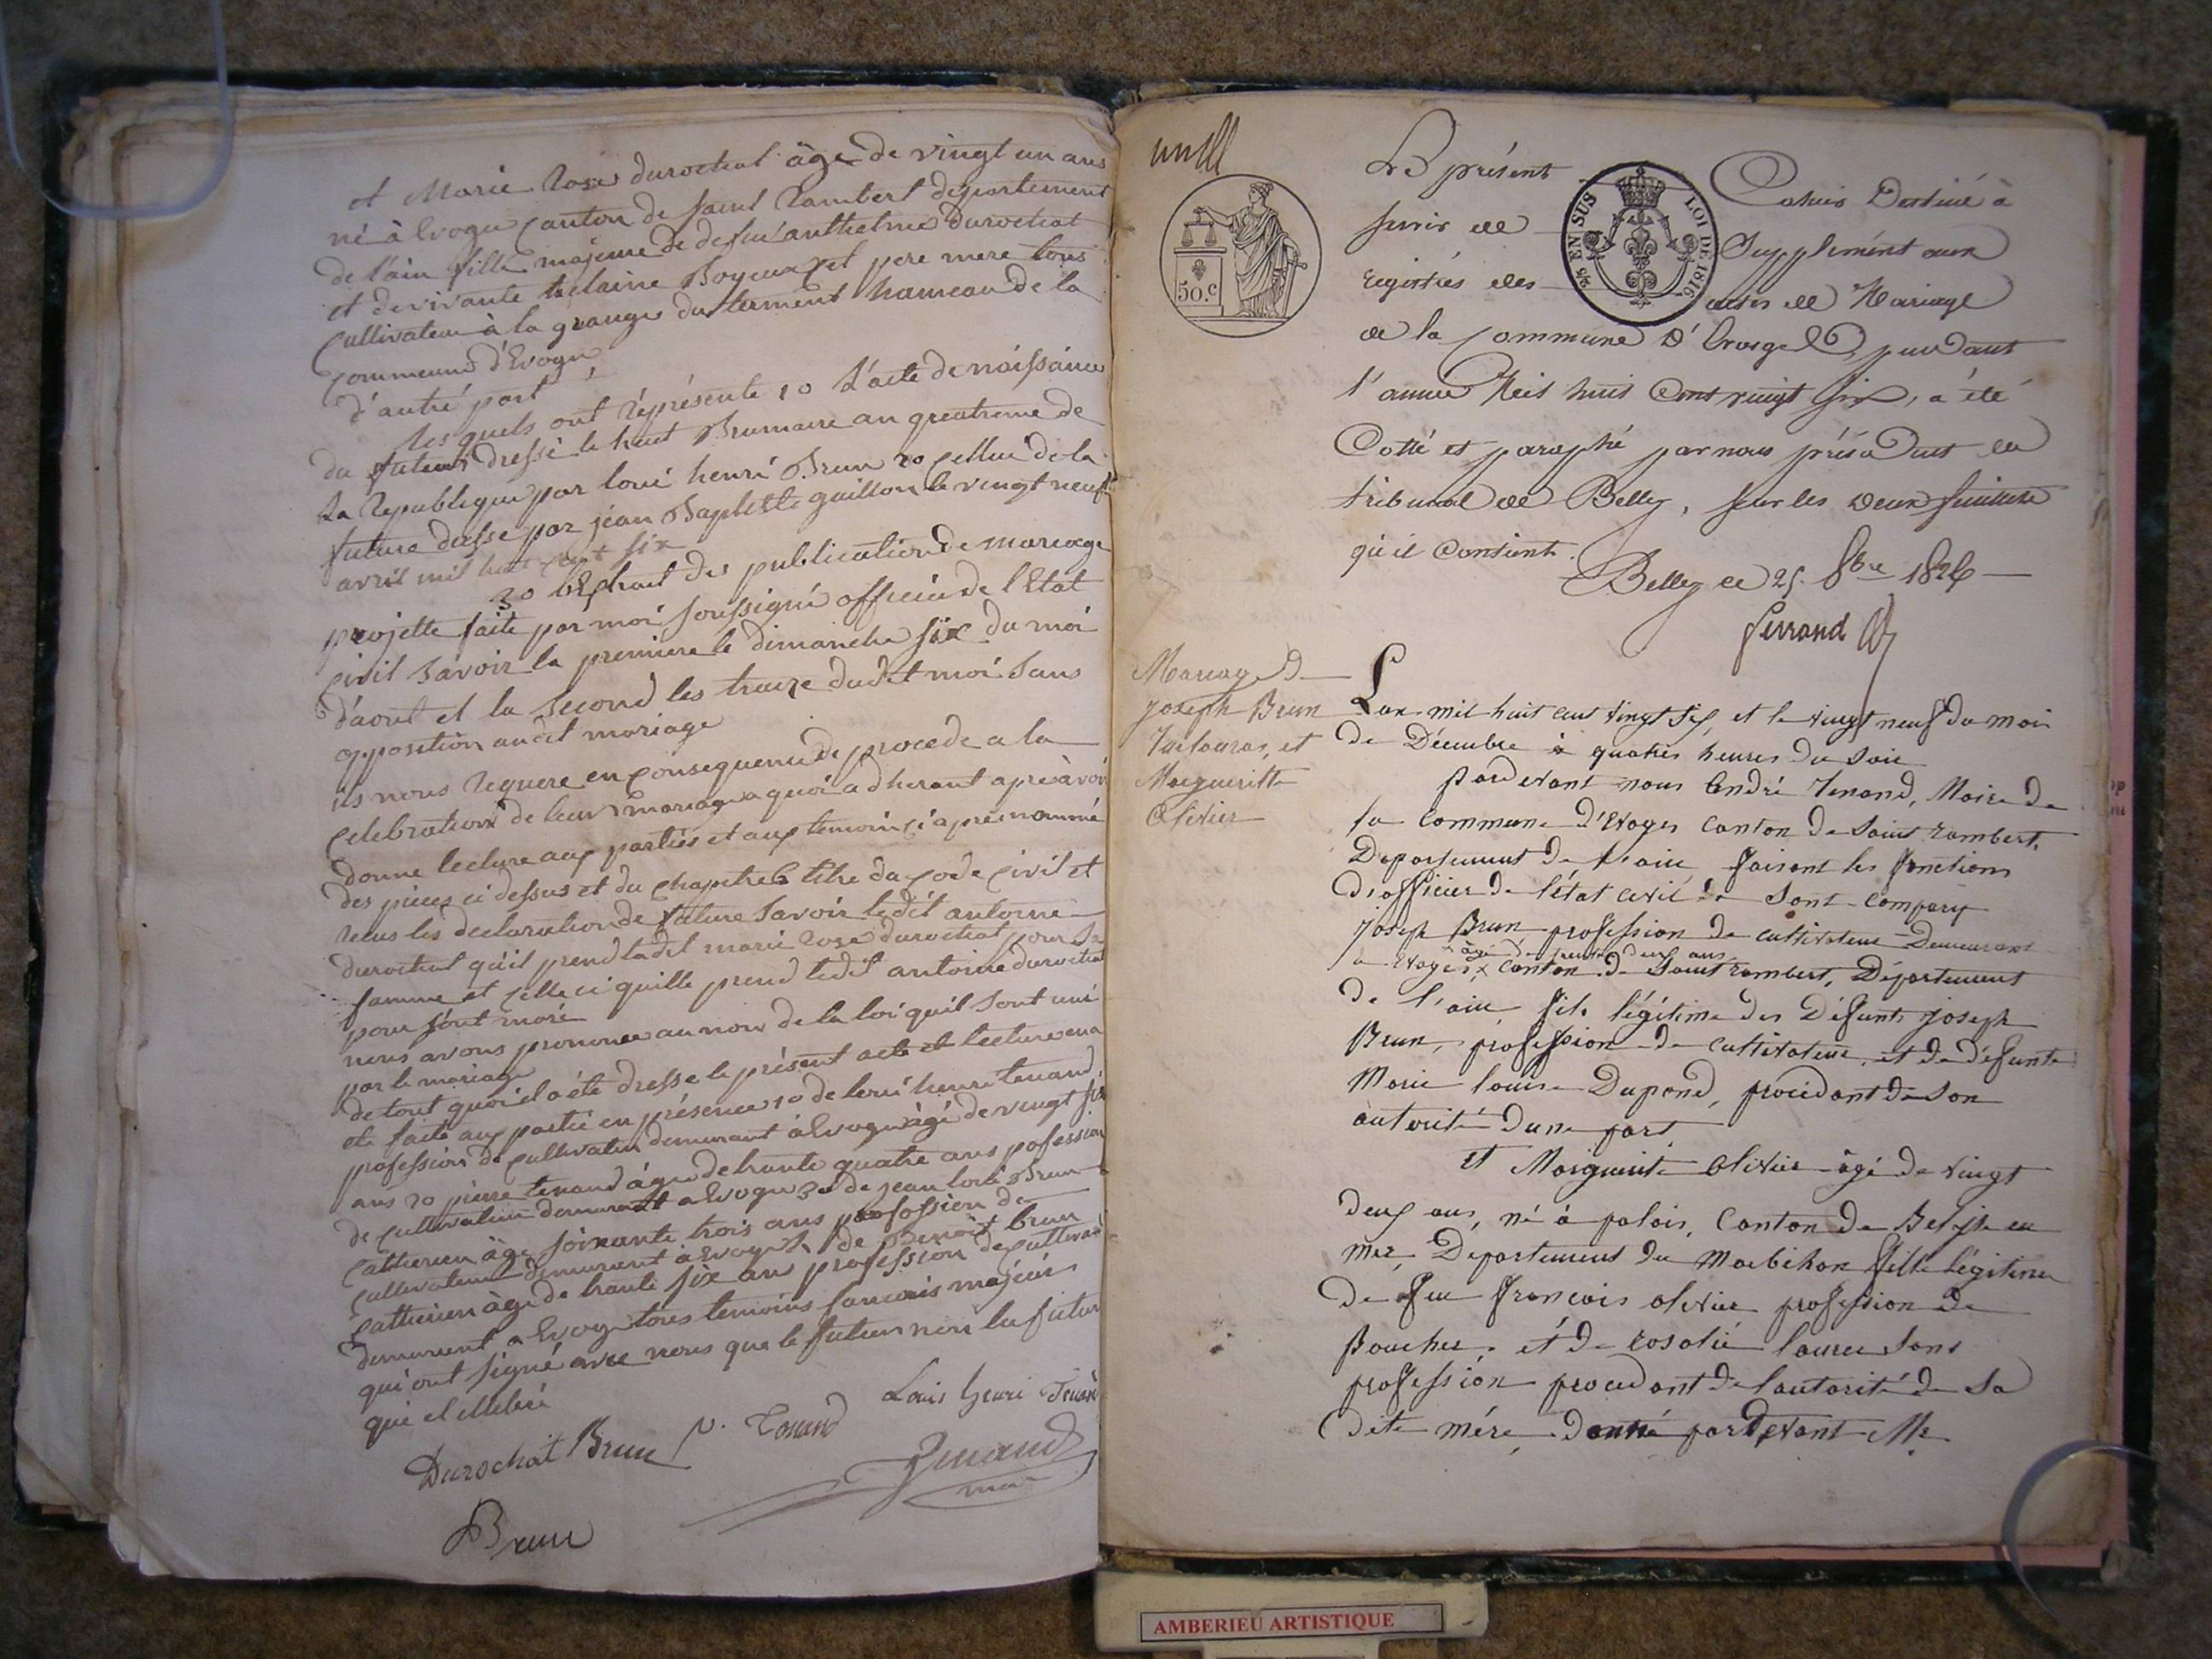 et Marie Rose durochat âge de vingt un ans
né à Evoge Canton de Saint Rambert département
de l'ain fille majeure de defui anthelme Durochat
et de vivante Boyeux et pere mere tous
Cultivateur à la grange du hameau de la
Commeune d'Evoge
d'autre part
les quels ont représente 1o L'acte de naissance
du futeur dressé le huit Brumaire an quatreme de
La Republique par loui henri Brun 2o celluie de la
future dresse par jean Baptiste guillon le vingt neuf
avril mil huit cent six
3o l'Extrait des publication de mariage
projette faite par moi soussigné officiéé de l'Etat
civil savoir la premiere le dimanche six du moi
d'aout et la second les treize dudit moi sans
opposition audit mariage
ils nous requere en consequence de procede a la
celebration de leur mariage a quoi adherant après avoir
donne lecture aux parties et aux temoin ci après nommé
des pieces ci dessus et du chapitre 6 titre du Code Civil et
recus les declaration de future savoir ledit antoine
durochat qu'il prend ladit marie rose durochat pour sa
famme et celle ci quille prend ledit antoine durochat
pour sont mari
nous avons prononcé au nom de la loi quil sont uni
par le mariage
de tout quoi il a éte dresse le présent acte et lecture en a
ete faite aux partie en présence 1o de loui henri tenand
profession de cultivateur demurant à Evoge âgé de vingt six
ans 2o pierre tenand âge de trante quatre ans pofession
de cultivateur demurant a Evoge 3o de jean loui Brun
Catherien âge soixante trois ans profossion de
cultivateur demurant à Evoge de Benoit brun
Catherien âge de trante six ans profession de cultivat
demurant a Evoge tous temoins francais majeur
qui ont signé avec nous que le futeur non la futur
qui el
Durochat Brun p. Tenand Louis henri Tenand
Tenand
Brun
Le présent Cahier Destiné à
servir de Supplément aux
registres des actes de Mariage
de la Commune d'Evoges pendant
l'année Mil huit Cent vingt six, a été
Cotté et paraphé par nous président du
tribunal de Belley, sur les deux feuillets
qu'il contient.
Belley le 25. 8bre 1826
Ferrand
50.c
EN SUS LOI DE 1816
Mariage D
Joseph Brun
et
Margueritte
Olivier
L'an mil huit cent vingt six, et le vingt neuf du mois
de Décembre à quatres heures du soir
pardevant nous André Tenand, Maire de
la Commune d'Evoges Canton de Saint rambert,
Departement de l'ain, faisant les fonctions
d'officier de l'état civil de Sont Comparu
Joseph Brun profession de cultivateur Demeurant
âgé de trente deux ans
a Evoges x Canton de Saint rambert, Département
de l'ain, fils légitime des Défunts joseph
Brun, profession de cultivateur, et de défunte
Marie louise Dupond, procédant de Son
autorité d'une part,
et Marguerite Olivier âgé de vingt
deux ans, né à palais, Canton de Belle ile en
mer, Departement du Morbihan fille légitime
de feu francois olivier profession de
Boucher, et de rosalie laurec sans
profession procedant de l'autorité de Sa
Dite mére, donné pardevant Me
AMBERIEU ARTISTIQUE